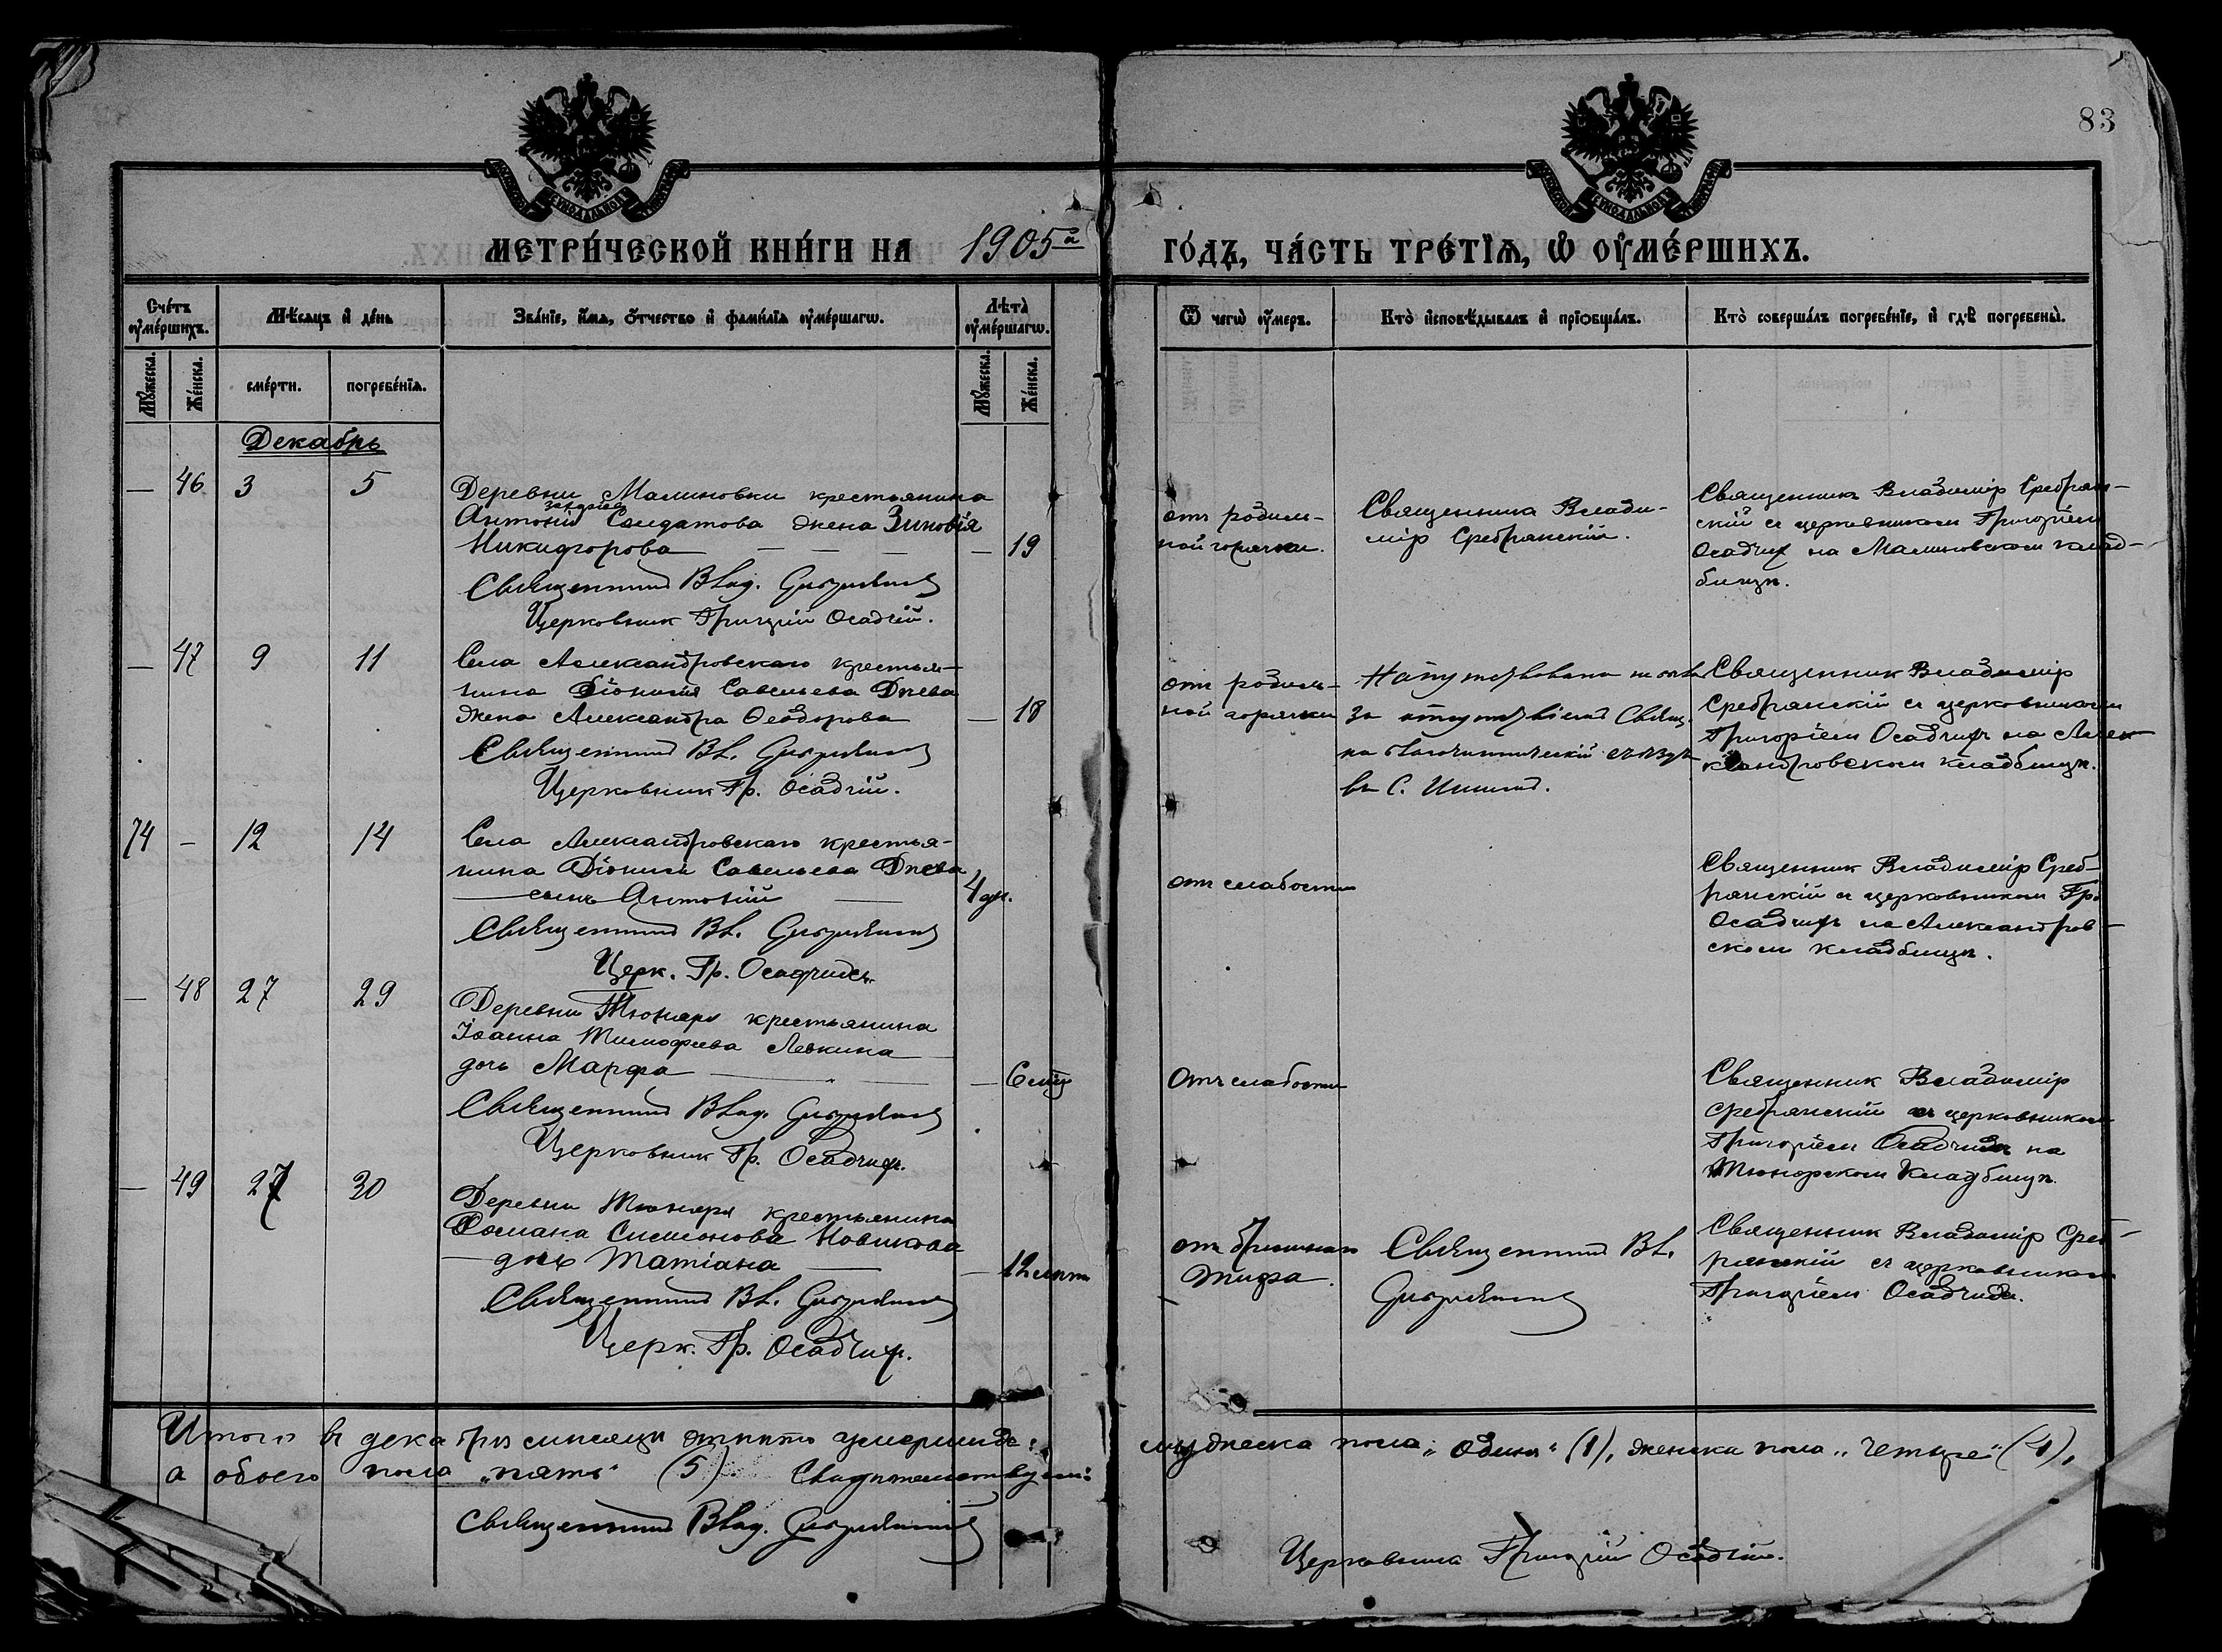 83
МЕТРИ́ЧЕСКОЙ КНИ́ГИ НА 1905ᵃ
ГО́ДЪ, ЧА́СТЬ ТРЕ́ТІѦ, Ѡ ОУ҆МЕ́РШИХЪ.
Сче́тъ оу҆ме́ршихъ.
Мѣ́сяцъ и҆ де́нь
Зва́нїе, и҆́мѧ, ѻ҆́тчество и҆ фами́лїѧ оу҆ме́ршагѡ.
Лѣта̀ оу҆ме́ршагѡ.
Ѿ чегѡ̀ оу҆́меръ.
Кто̀ и҆сповѣ́дывалъ и҆ прїѡбща́лъ.
Кто̀ соверша́лъ погребе́нїе, и҆ гдѣ̀ погребены̀.
Мꙋ́жеска.
Же́нска.
сме́рти.
погребе́нїѧ.
Мꙋ́жеска.
Же́нска.
Декабрь
— 46 3 5
Деревни Малиновки крестьянина
Антонія Солдатова жена Зиновія
Никифорова — — — — 19
Священникъ Влад. Сребрянскій
Церковник Григорій Осадчій.
отъ родиль-
ной горячки.
Священникъ Влади-
мір Сребрянскій.
Священникъ Владимір Сребрян-
скій съ церковником Григоріем
Осадчих на Малиновском клад-
бищѣ.
— 47 9 11
Села Александровскаго крестья-
нина Діонисія Савельева Днева
жена Александра Ѳеодорова — 18
Священникъ Вл. Сребрянскій
Церковник Гр. Осадчій.
отъ родиль-
ной горячки
за отсутствіем Свящ.
на благочинническій съѣздъ
въ С.
Священник Владимір
Сребрянскій съ церковником
Григоріем Осадчих на Алек-
сандровском кладбищѣ.
74 — 12 14
Села Александровскаго крестья-
нина Діонисія Савельева Днева
сынъ Антоній 4 дн.
Священникъ Вл. Сребрянскій
Церк. Гр. Осадчихъ.
отъ слабости
Священник Владимір Среб-
рянскій съ церковником Гр.
Осадчихъ на Александров-
ском кладбищѣ.
— 48 27 29
Деревни Тюняръ крестьянина
Іоанна Тимофеева Левкина
дочь Марфа — 6 мѣс
Священникъ Влад. Сребрянскій
Церковник Гр. Осадчих.
Отъ слабости
Священник Владимір
Сребрянскій съ церковником
Григоріем Осадчихъ на
Тюнярском Кладбищѣ.
— 49 27 30
Деревни Тюняръ крестьянина
Симонова Новикова
дочь Татіана — 12 лѣтъ
Священникъ Вл. Сребрянскій
Церк. Гр. Осадчих.
отъ брюшного
тифа.
Священникъ Вл.
Сребрянскій
Священник Владимір Среб-
рянскій съ церковником
Григоріем Осадчихъ.
Итого въ декабрѣ мѣсяцѣ умершихъ:
мужеска пола „Один" (1), женска пола „Четыре" (4),
а обоего пола „пять" (5). Свидѣтельствуем:
Священникъ Влад. Сребрянскій
Церковникъ Григорій Осадчій.